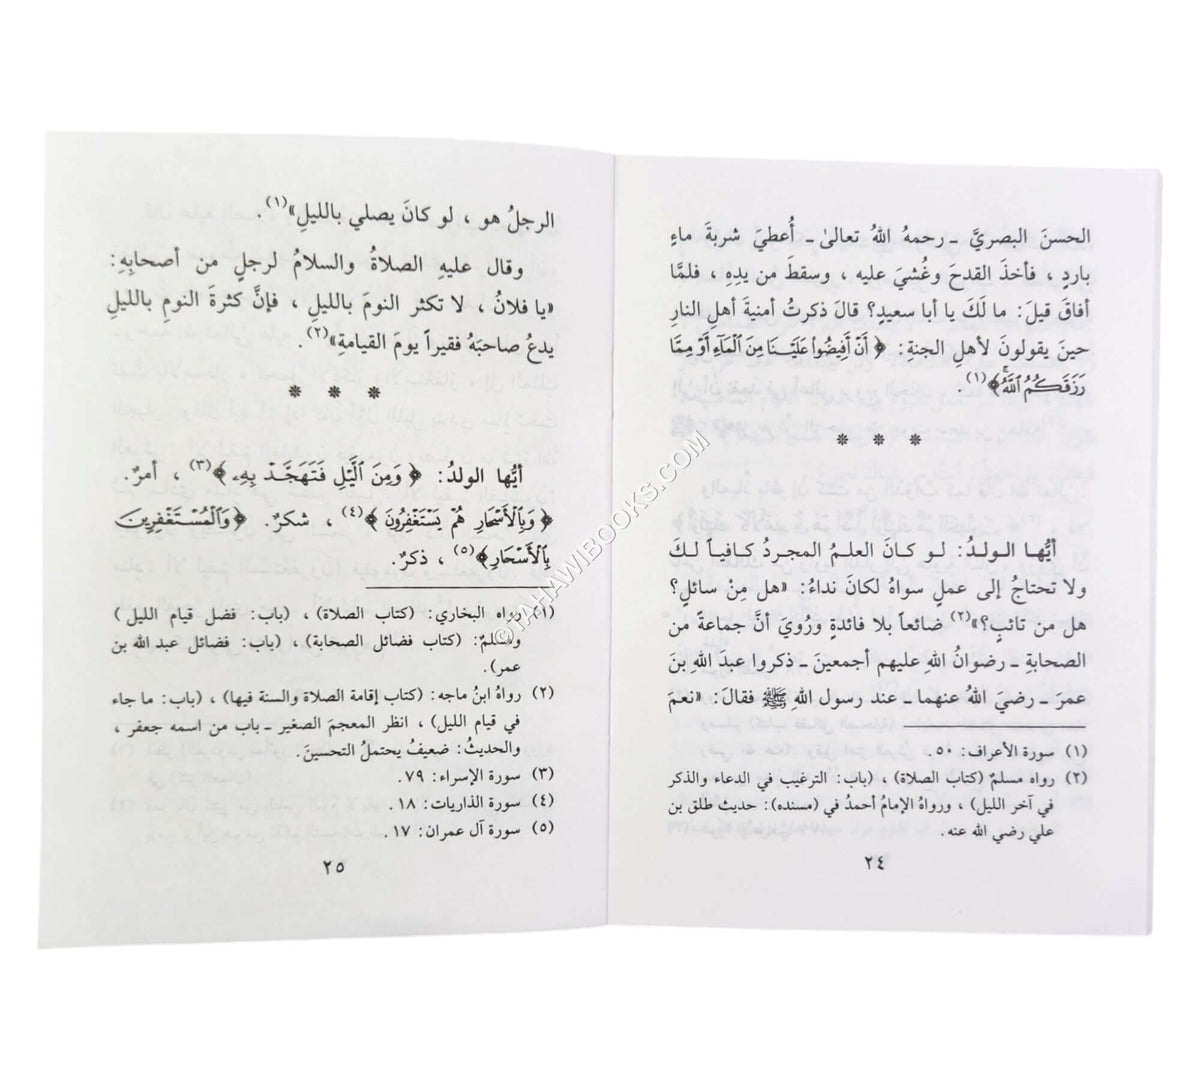 الحسنَ البصريَّ ـ رحمهُ اللهُ تعالىٰ ـ أُعطيَ شربةَ ماءٍ
باردٍ ، فأخذَ القدحَ وغُشيَ عليه ، وسقطَ من يدِهِ ، فلمَّا
أفاقَ قيلَ: ما لَكَ يا أبا سعيدٍ؟ قالَ ذكرتُ أمنيةَ أهلِ النارِ
حينَ يقولونَ لأهلِ الجنةِ: ﴿ أَنْ أَفِيضُوا۟ عَلَيْنَا مِنَ الْمَآءِ أَوْ مِمَّا
رَزَقَكُمُ اللَّهُ ﴾(١).
* * *
أيُّها الولدُ: لو كانَ العلمُ المجردُ كافياً لكَ
ولا تحتاجُ إلى عملٍ سواهُ لكانَ نداءُ: «هل مِنْ سائلٍ؟
هل من تائبٍ؟»(٢) ضائعاً بلا فائدةٍ ورُويَ أنَّ جماعةً من
الصحابةِ ـ رضوانُ اللهِ عليهم أجمعينَ ـ ذكروا عبدَ اللهِ بنَ
عمرَ ـ رضيَ اللهُ عنهما ـ عند رسولِ اللهِ ﷺ فقالَ: «نعمَ
(١) سورة الأعراف: ٥٠.
(٢) رواه مسلمٌ (كتاب الصلاة) ، (باب: الترغيب في الدعاء والذكر
في آخر الليل) ، ورواهُ الإمامُ أحمدُ في (مسنده): حديث طلق بن
علي رضي الله عنه.
٢٤
الرجلُ هو ، لو كانَ يصلي بالليلِ»(١).
وقال عليهِ الصلاةُ والسلامُ لرجلٍ من أصحابِهِ:
«يا فلانُ ، لا تكثر النومَ بالليلِ ، فإنَّ كثرةَ النومِ بالليلِ
يدعُ صاحبَهُ فقيراً يومَ القيامةِ»(٢).
* * *
أيُّها الولدُ: ﴿ وَمِنَ الَّيْلِ فَتَهَجَّدْ بِهِۦ ﴾(٣) ، أمرٌ.
﴿ وَبِالْأَسْحَارِ هُمْ يَسْتَغْفِرُونَ ﴾(٤) ، شكرٌ. ﴿ وَالْمُسْتَغْفِرِينَ
بِالْأَسْحَارِ ﴾(٥) ، ذكرٌ.
(١) رواه البخاري: (كتاب الصلاة) ، (باب: فضل قيام الليل)
ومسلمٌ: (كتاب فضائل الصحابة) ، (باب: فضائل عبد الله بن
عمر).
(٢) رواهُ ابنُ ماجه: (كتاب إقامة الصلاة والسنة فيها) ، (باب: ما جاء
في قيام الليل) ، انظر المعجمَ الصغير ـ باب من اسمه جعفر ،
والحديثُ: ضعيفٌ يحتملُ التحسينَ.
(٣) سورة الإسراء: ٧٩.
(٤) سورة الذاريات: ١٨.
(٥) سورة آل عمران: ١٧.
٢٥